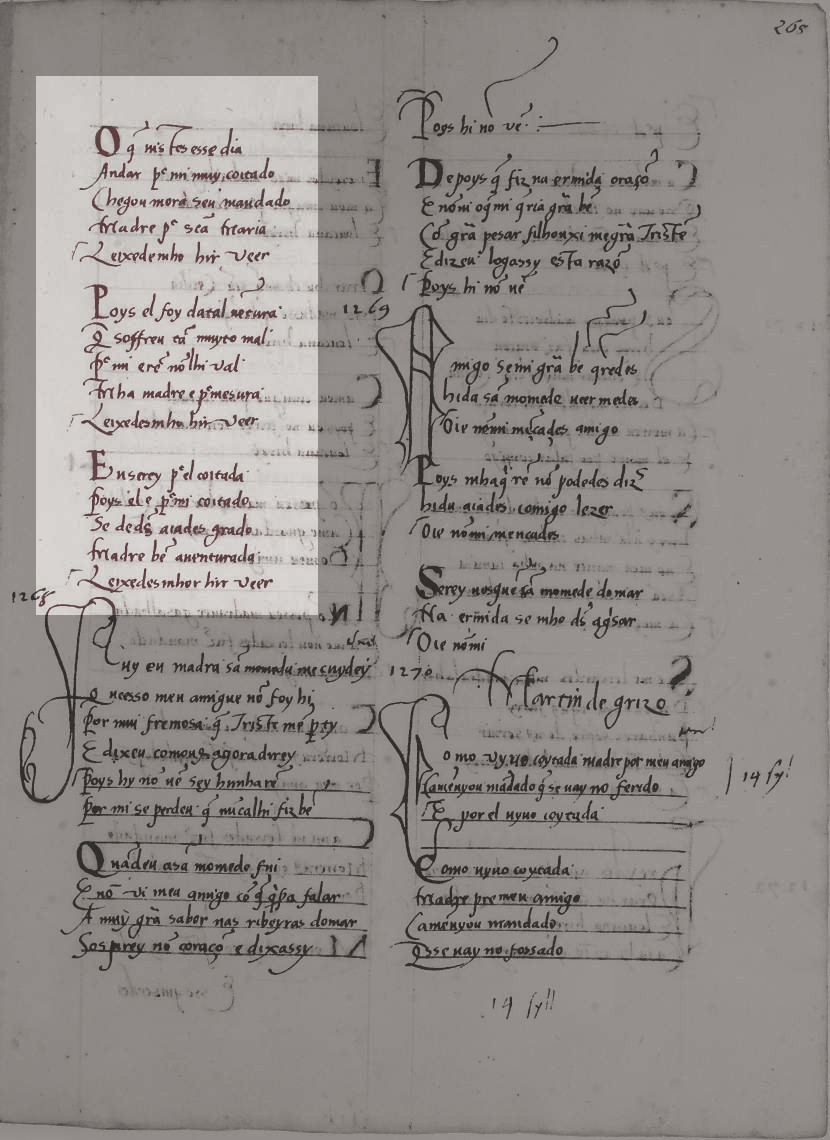 265
O q̄ uis tes esse dia
Andar p̄ mi muy coitado
Chegou mora seu mandado
Madre p̄ scā Maria
Leixedemho hir Veer
Poys el foy datal uētura
Q̄ soffreu tā muyto mal
P̄ mi e rē nōlhi val
Mha madre e p̄ mesura
Leixedesmho hir Veer
Eu serey p̄ el coitada
Poys el e p̄ mi coitado
Se de ds̄ aiades grado
Madre bē auenturada
Leixedesmhor hir veer
1268
uy eu madra sā momedu me cuydey
Q ueesso meu amigue nō foy hi
Por mui fremosa q̄ Triste me p̄ty
E dixeu comous agora direy
Poys hy nō uē sey hunha rē
Por mi se perdeu q̄ nūcalhi fiz bē
Quādeu a sā momede fui
E nō vi meu amigo cō q̄ q̄ria falar
A muy grā sabor nas ribeyras domar
Sospirey nō coraçō e dixassy
Poys hi nō uē
Depoys q̄ fiz na ermida oraçō
E nō ui o q̄ mi q̄ria grā bē
Cō grā pesar filhouxi me grā Triste
E dizeu logassy esta razō
Poys hi nō uē
1269
Amigo se mi grā bē q̄redes
hida sā momede ueer medes
Oie nō mi mēcades amigo
Poys mhaq̄ rē nō podedes diz̄
hidu aiades comigo lezer
Oie nō mi mencades
Serey uosque sā momede do mar
Na ermida se mho ds̄ aguisar
Oie nō mi
1270
Martin de grizo
Como uyuo coytada madre por meu amigo
Ca menuyou mādado q̄ se uay no ferido
E por el uyuo coytada
Como uyuo coytada
Madre pre meu amigo
Ca mēuyou mandado
Q̄ sse uay no fossado